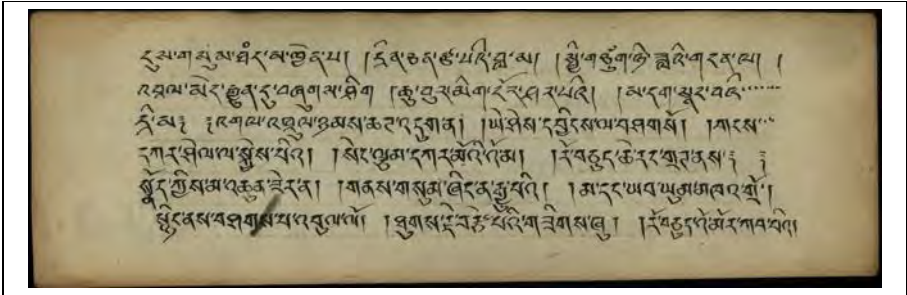 དུས་གསུམ་ཐཾད་མ་ཁྱེན་པ། །དྲིན་ཅན་ཙ་པའི་བླ་མ། །སྤྱི་གཙུག་ཉི་ཟླའི་གདན་ལ། །
འབྲལ་མེད་རྒྱུན་དུ་བཞུགས་ཤིག །ཆུ་བུར་མིག་དོར་ཤར་པའི། །མ་དག་སྣང་བའི་་་་་་
དྲི་མ༔ ༔འགལ་འཁྲུལ་ཉམས་ཆག་འདུག་ན། །ཡེ་ཤེས་དབྱིངས་ལ་བཤགསོ། །གངས་་་
དཀར་ཤེལ་ལ་སྐྱེས་པའི། །སེང་ལྕམ་དཀར་མོའི་འོམ། །རོ་བཅུད་ཆེ་རང་གྲགནས༔ ༔
སྣོད་ཀྱིས་མ་འཆུན་ཟེར་ན། །གནས་གསུམ་ཞིང་ན་རྒྱུ་བའི། །མ་དང་ཡབ་ཡུམ་མཁའ་འགྲོ།
སྙིང་ནས་བཤགས་པ་འབུལ་ལོ། །ཐུགས་རྗེ་བརྩེ་བའི་གཟིགས་ཞུ། །རོ་བཅུད་འོ་མོར་ཀབ་པའི།